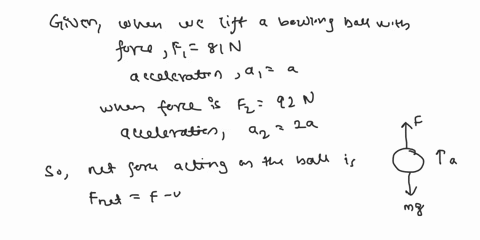 Given, when we lift a bowling ball with
force, F₁ = 81 N
acceleration, a₁ = a
when force is F₂ = 92 N
acceleration, a₂ = 2a
So, net force acting on the ball is
Fnet = F -
F
↑a
mg